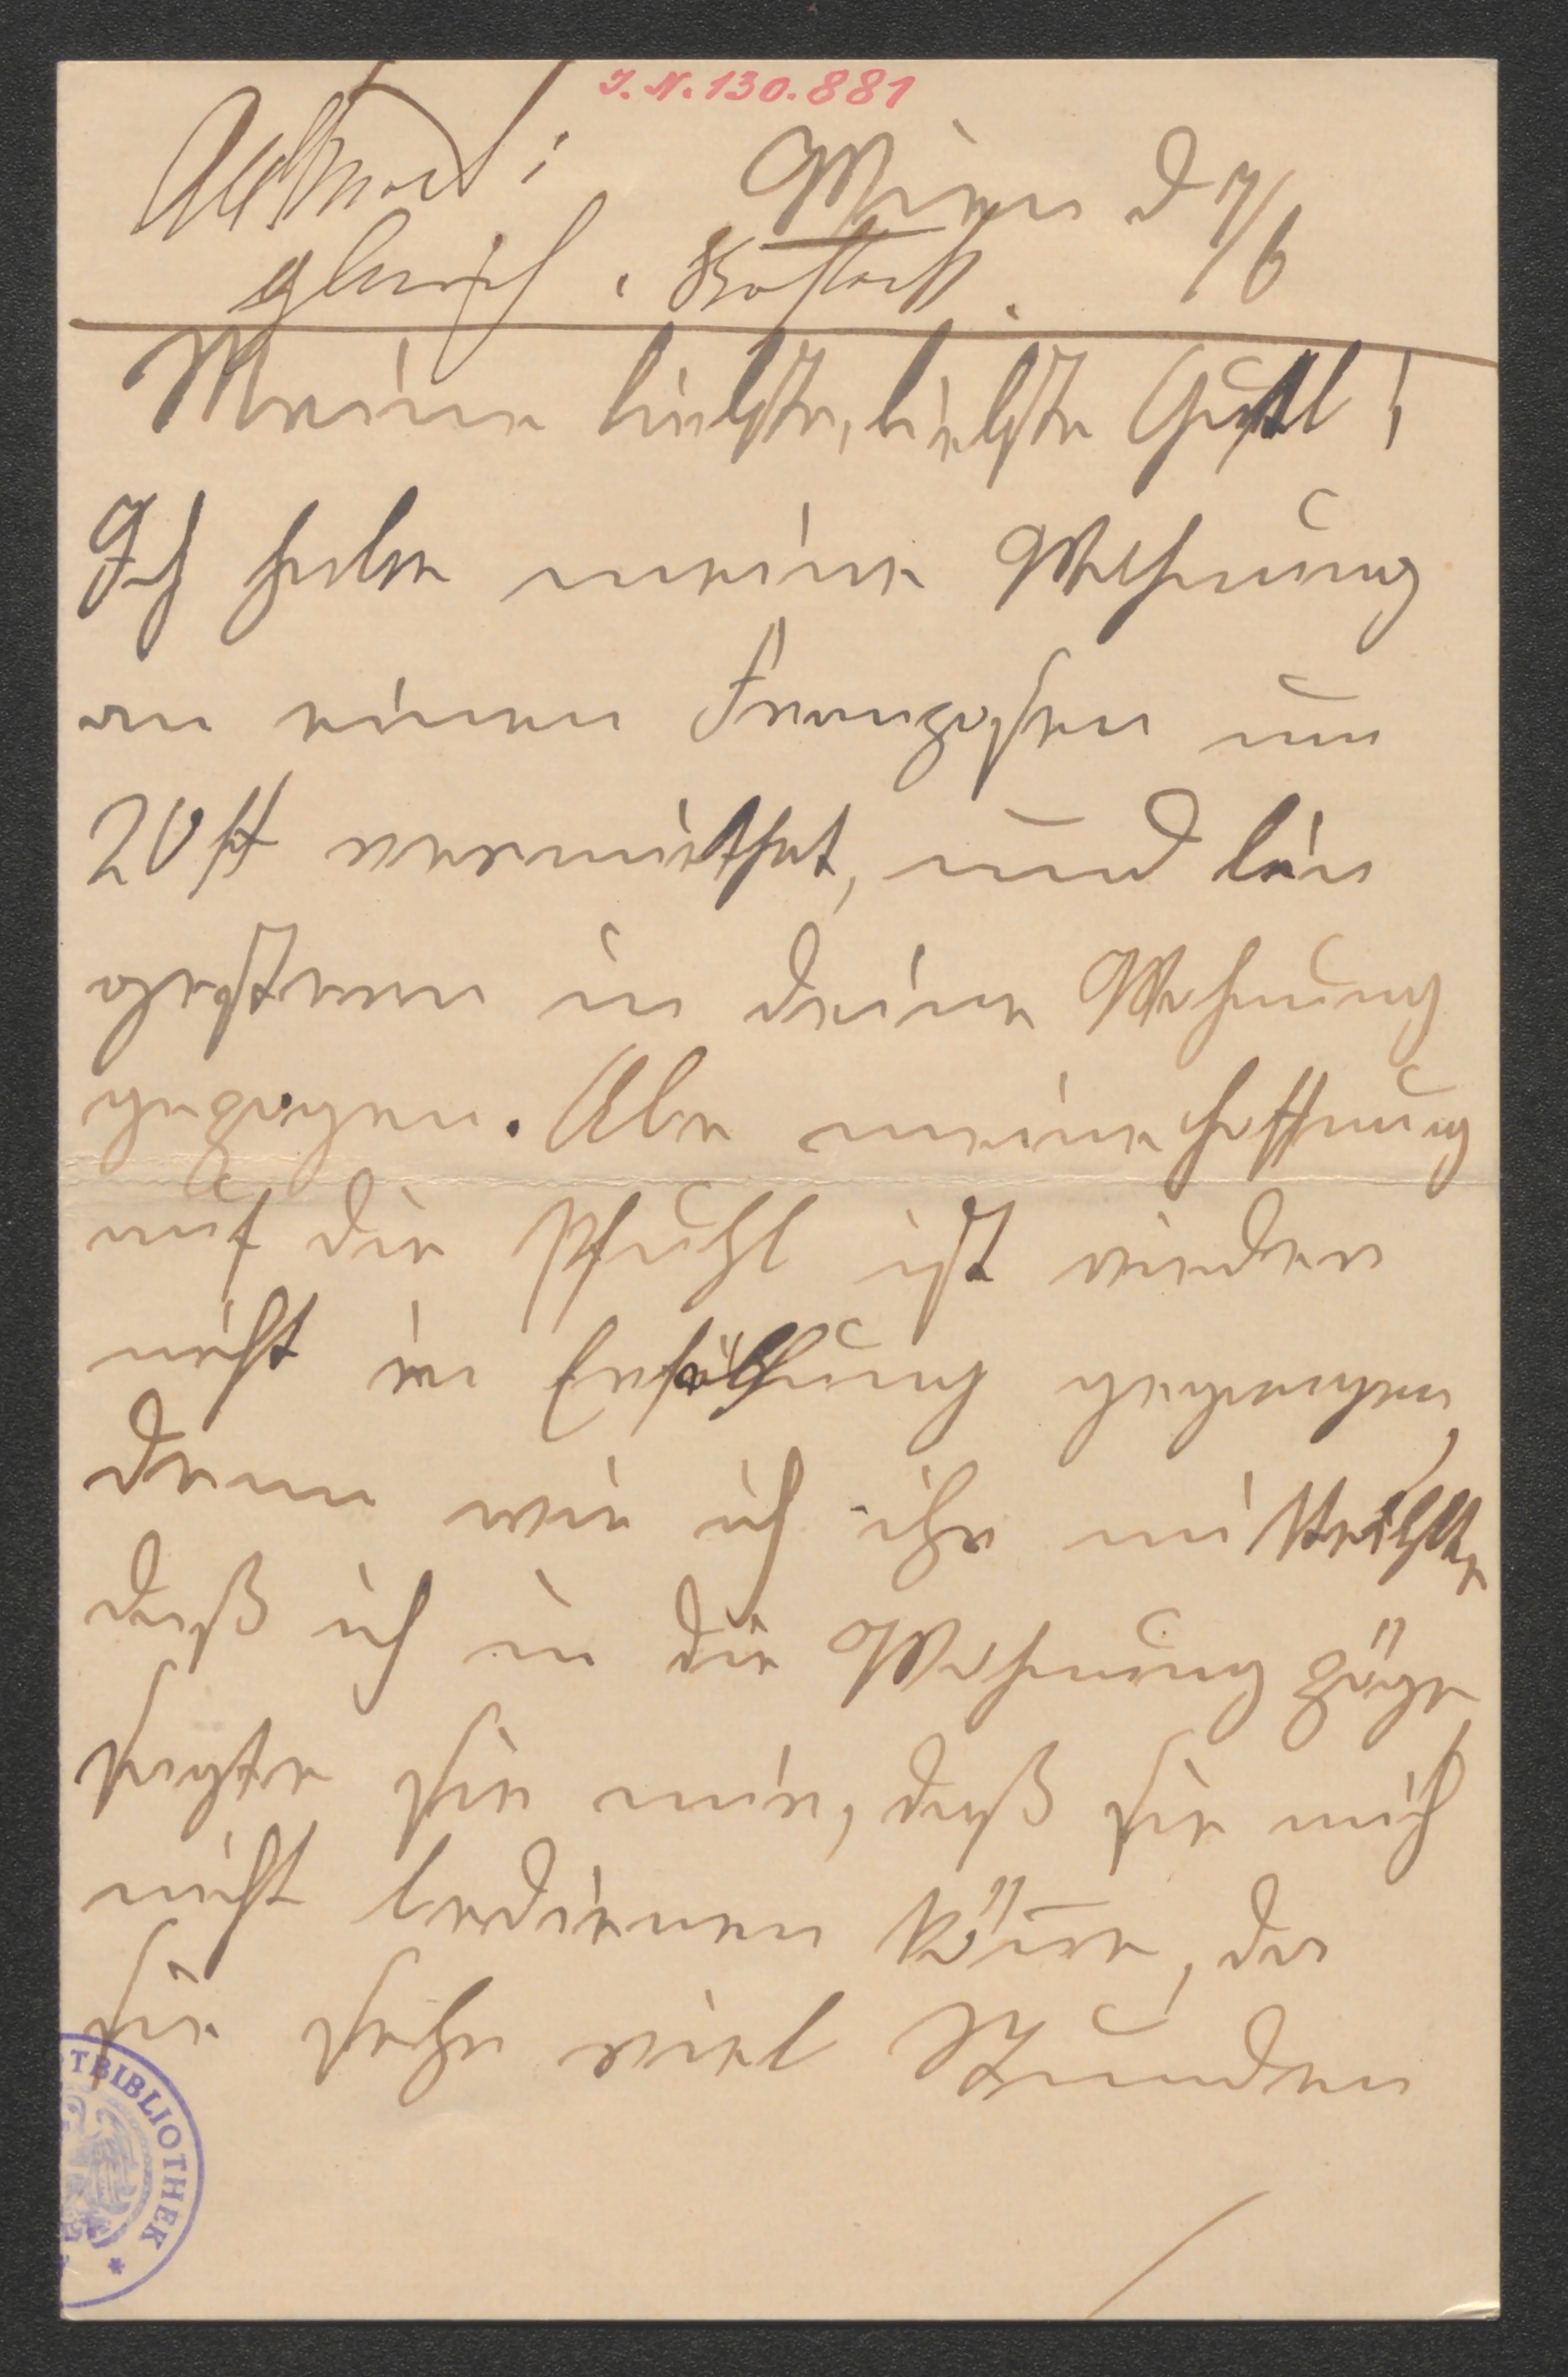 J. N. 130.881
Wien d 7/6
Meine liebste, liebste Gustl!
Ich habe meine Wohnung
an einen Franzosen um
20 fl vermiethet, und bin
gestern in deine Wohnung
gezogen. Aber meine Hoffnung
auf die Pfuhl ist wieder
nicht in Erfüllung gegangen,
denn wie ich ihr mittheilte
daß ich in die Wohnung zöge,
sagte sie mir, daß sie mich
nicht bedienen köne, da
sie sehr viel Stunden
TBIBLIOTHEK